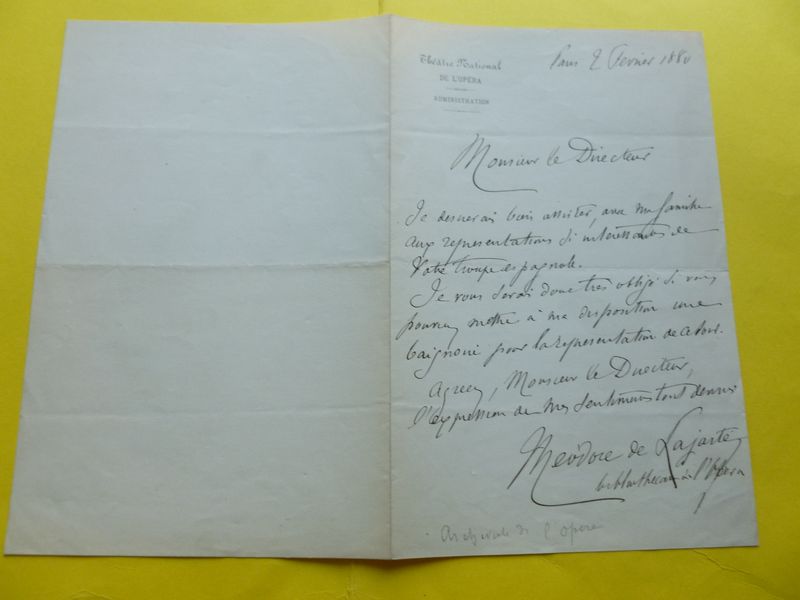 Théâtre National
DE L'OPÉRA
ADMINISTRATION
Paris 2 Fevrier 1880
Monsieur le Directeur
Je desirerais bien assister, avec ma famille
aux representations si interessantes de
Votre troupe espagnole.
Je vous serai donc tres obligé si vous
pouvez mettre à ma disposition une
baignoire pour la representation de ce soir.
Agreez, Monsieur le Directeur,
l'expression de mes sentiments tout devoués
Theodore de Lajarte
bibliothecaire de l'Opera
Archiviste de l'Opera